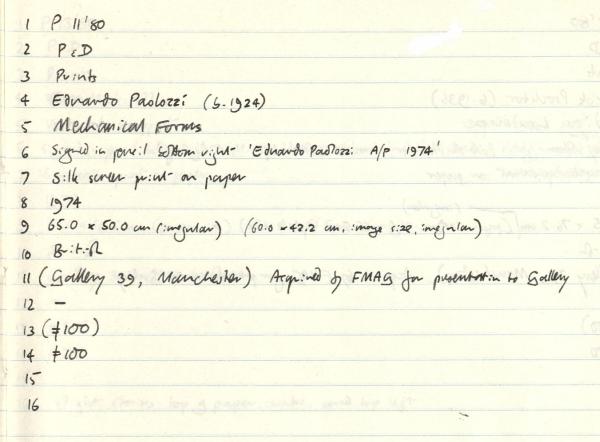 1 P 11'80
2 P & D
3 Prints
4 Eduardo Paolozzi (b. 1924)
5 Mechanical Forms
6 Signed in pencil bottom right 'Eduardo Paolozzi A/P 1974'
7 Silk screen print on paper
8 1974
9 65.0 x 50.0 cm (irregular) (60.0 x 42.2 cm, image size, irregular)
10 British
11 (Gallery 39, Manchester) Acquired by FMAG for presentation to Gallery
12 –
13 (£100)
14 £100
15
16